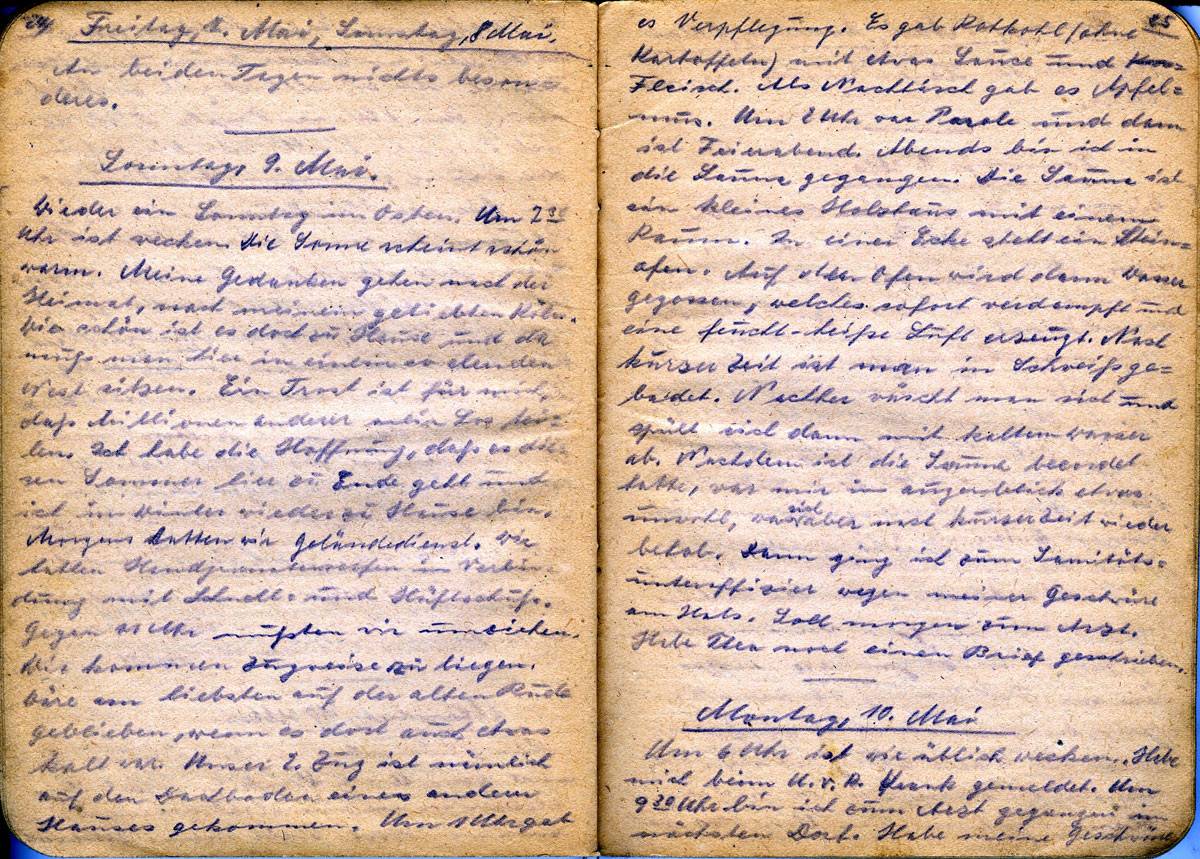 24
Freitag, 7. Mai, Sonnstag, 8 Mai.
An beiden Tagen nichts beson-
deres.
Sonntag, 9. Mai.
Wieder ein Sonntag im Osten. Um 7³⁰
Uhr ist wecken. Die Sonne scheint schön
warm. Meine Gedanken gehen nach der
Heimat, nach meinem geliebten Köln.
Wie schön ist es doch zu Hause und da
muß man hier in einem so elenden
Nest sitzen. Ein Trost ist für mich,
daß Millionen anderer mein Los tei-
len. Ich habe die Hoffnung, daß es die-
sen Sommer hier zu Ende geht und
ich im Winter wieder zu Hause bin.
Morgens hatten wir Geländedienst. Wir
hatten Handgranatenwerfen in Verbin-
dung mit Schnell- und Hüftschuß.
Gegen 11 Uhr mußten wir umziehen.
Wir kommen zugweise zu liegen.
Wäre am liebsten auf der alten Bude
geblieben, wenn es dort auch etwas
kalt war. Unser 2. Zug ist nämlich
auf den Dachboden eines andern
Hauses gekommen. Um 1 Uhr gab
25
es Verpflegung. Es gab Rotkohl (ohne
Kartoffeln) mit etwas Sauce und
Fleisch. Als Nachtisch gab es Apfel-
mus. Um 2 Uhr war Parole und dann
ist Feierabend. Abends bin ich in
die Sauna gegangen. Die Sauna ist
ein kleines Holzhaus mit einem
Raum. In einer Ecke steht ein Stein-
ofen. Auf den Ofen wird dann Wasser
gegossen, welches sofort verdampft und
eine feucht-heiße Luft erzeugt. Nach
kurzer Zeit ist man in Schweiß ge-
badet. Nachher wäscht man sich und
spült sich dann mit kaltem Wasser
ab. Nachdem ich die Sauna beendet
hatte, war mir im Augenblick etwas
unwohl, was sich aber nach kurzer Zeit wieder
behob. Dann ging ich zum Sanitäts-
unteroffizier wegen meiner Geschwüre
am Hals. Soll morgen zum Arzt.
Habe Thea noch einen Brief geschrieben.
Montag, 10. Mai
Um 6 Uhr ist wie üblich wecken. Habe
mich beim U.v.D. krank gemeldet. Um
9³⁰ Uhr bin ich zum Arzt gegangen im
nächsten Dorf. Habe meine Geschwüre